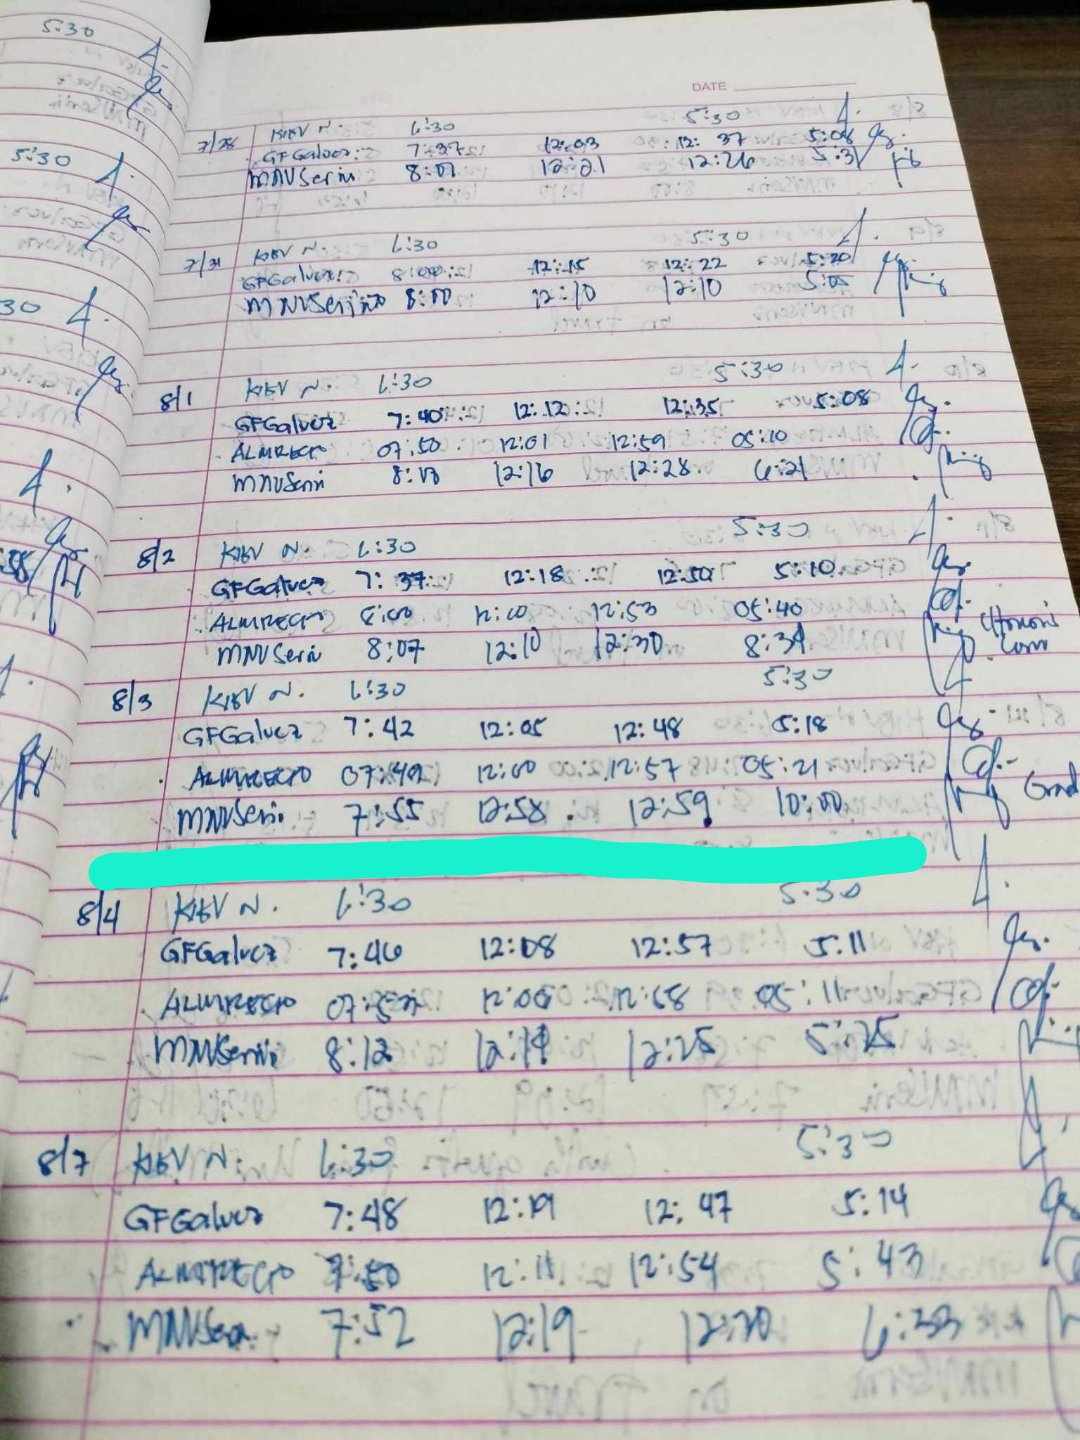 5:30
5:30
30
DATE
7/28 KIEV N. 6:30 5:30
GFGalvez 7:37 12:03 12:37 5:08
MNVSerin 8:01 12:21 12:26 5:31
7/31 KIEV N. 6:30 5:30
GFGalvez 8:00 12:15 12:22 5:20
MNVSerin 8:00 12:10 12:10 5:05
8/1 KIEV N. 6:30 5:30
GFGalvez 7:40 12:12 12:35 5:08
ALMRECTO 07:50 12:01 12:59 05:10
MNVSerin 12:16 12:28 6:21
8/2 KIEV N. 6:30 5:30
GFGalvez 7:37 12:18 12:50 5:10
ALMRECTO 12:00 12:53 05:40
MNVSerin 8:07 12:10 12:30 8:31 Honors
8/3 KIEV N. 6:30 5:30
GFGalvez 7:42 12:05 12:48 5:18
ALMRECTO 07:49 12:00 12:57 05:21
MNVSerin 7:55 12:58 12:59 10:00 Grad
8/4 KIEV N. 6:30 5:30
GFGalvez 7:46 12:08 12:57 5:11
ALMRECTO 12:00 12:58 05:11
MNVSerin 8:12 12:19 12:25 5:25
8/7 KIEV N. 6:30 5:30
GFGalvez 7:48 12:19 12:47 5:14
ALMRECTO 7:50 12:11 12:54 5:43
MNVSerin 7:52 12:19 12:20 6:33